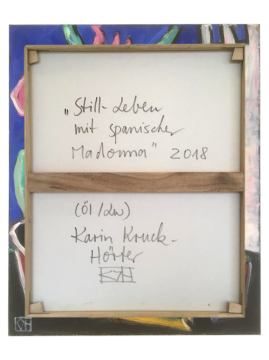 „Still-Leben
mit spanischer
Madonna" 2018
(Öl/Lw)
Karin Kruck-
Hörter
KKH